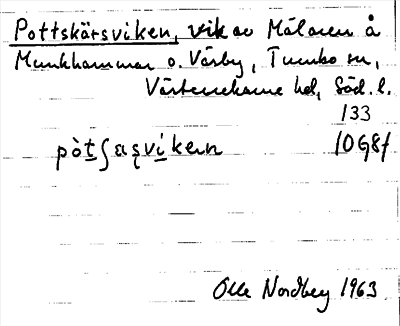 Pottskärsviken, vik av Mälaren å
Munkhammar o. Vårby, Tumbo sn,
Västerrekarne hd, Söd. l.
133
pòt̲ʃɛa̲ṣvi̲ken 10G8f
Olle Nordberg 1963